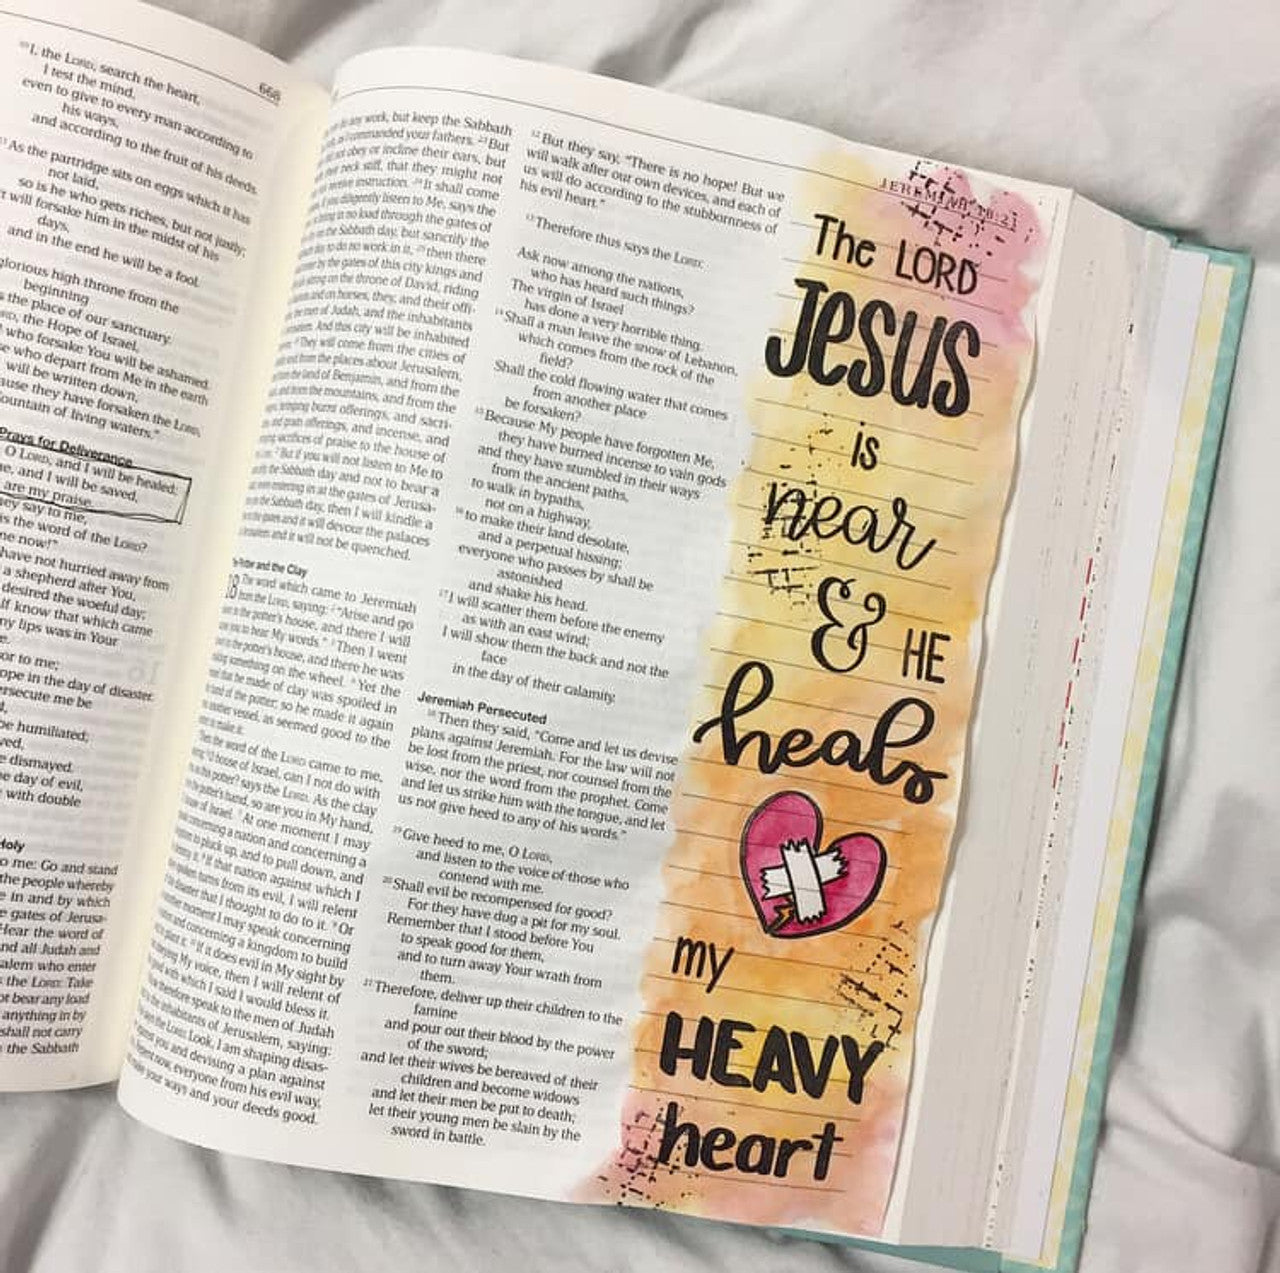 668
¹⁰I, the LORD, search the heart,
I test the mind,
even to give to every man according to
his ways,
and according to the fruit of his deeds.
As the partridge sits on eggs which it has
not laid,
so is he who gets riches, but not justly;
will forsake him in the midst of his
days,
and in the end he will be a fool.
glorious high throne from the
beginning
the place of our sanctuary.
the Hope of Israel,
who forsake You will be ashamed.
who depart from Me in the earth
will be written down,
have forsaken the LORD,
fountain of living waters."
Prays for Deliverance
O LORD, and I will be healed;
and I will be saved,
are my praise.
say to me,
is the word of the LORD?
now!"
have not hurried away from
a shepherd after You,
desired the woeful day;
know that which came
my lips was in Your
to me;
in the day of disaster.
persecute me be
be humiliated;
be dismayed.
day of evil,
with double
Holy
to me: Go and stand
the people whereby
in and by which
gates of Jerusa-
Hear the word of
and all Judah and
who enter
the LORD: Take
bear any load
anything in by
shall not carry
the Sabbath
any work, but keep the Sabbath
I commanded your fathers. ²³But
not obey or incline their ears, but
neck stiff, that they might not
receive instruction. ²⁴It shall come
you diligently listen to Me, says the
in no load through the gates of
the Sabbath day, but sanctify the
to do no work in it, ²⁵then there
by the gates of this city kings and
sitting on the throne of David, riding
and on horses, they, and their offi-
men of Judah, and the inhabitants
And this city will be inhabited
They will come from the cities of
and from the places about Jerusalem,
the land of Benjamin, and from the
from the mountains, and from the
bringing burnt offerings, and sacri-
and grain offerings, and incense, and
sacrifices of praise to the house of
But if you will not listen to Me to
the Sabbath day and not to bear a
entering in at the gates of Jerusa-
the Sabbath day, then I will kindle a
gates and it will devour the palaces
and it will not be quenched.
Potter and the Clay
18 The word which came to Jeremiah
from the LORD, saying: ²"Arise and go
to the potter's house, and there I will
you to hear My words." ³Then I went
to the potter's house, and there he was
something on the wheel. ⁴Yet the
that he made of clay was spoiled in
hand of the potter; so he made it again
another vessel, as seemed good to the
make it.
Then the word of the LORD came to me,
house of Israel, can I not do with
this potter? says the LORD. As the clay
the potter's hand, so are you in My hand,
house of Israel. ⁷At one moment I may
concerning a nation and concerning a
to pluck up, and to pull down, and
if that nation against which I
spoken turns from its evil, I will relent
the disaster that I thought to do to it. ⁹Or
another moment I may speak concerning
and concerning a kingdom to build
plant it; ¹⁰if it does evil in My sight by
obeying My voice, then I will relent of
good with which I said I would bless it.
therefore speak to the men of Judah
inhabitants of Jerusalem, saying:
says the LORD: Look, I am shaping disas-
against you and devising a plan against
now, everyone from his evil way,
your ways and your deeds good.
¹²But they say, "There is no hope! But we
will walk after our own devices, and each of
us will do according to the stubbornness of
his evil heart."
¹³Therefore thus says the LORD:
Ask now among the nations,
who has heard such things?
The virgin of Israel
has done a very horrible thing.
¹⁴Shall a man leave the snow of Lebanon,
which comes from the rock of the
field?
Shall the cold flowing water that comes
from another place
be forsaken?
¹⁵Because My people have forgotten Me,
they have burned incense to vain gods
and they have stumbled in their ways
from the ancient paths,
to walk in bypaths,
not on a highway,
¹⁶to make their land desolate,
and a perpetual hissing;
everyone who passes by shall be
astonished
and shake his head.
¹⁷I will scatter them before the enemy
as with an east wind;
I will show them the back and not the
face
in the day of their calamity.
Jeremiah Persecuted
¹⁸Then they said, "Come and let us devise
plans against Jeremiah. For the law will not
be lost from the priest, nor counsel from the
wise, nor the word from the prophet. Come
and let us strike him with the tongue, and let
us not give heed to any of his words."
¹⁹Give heed to me, O LORD,
and listen to the voice of those who
contend with me.
²⁰Shall evil be recompensed for good?
For they have dug a pit for my soul.
Remember that I stood before You
to speak good for them,
and to turn away Your wrath from
them.
²¹Therefore, deliver up their children to the
famine
and pour out their blood by the power
of the sword;
and let their wives be bereaved of their
children and become widows
and let their men be put to death;
let their young men be slain by the
sword in battle.
JEREMIAH 18:21
The LORD
Jesus
is
near
& HE
heals
my
HEAVY
heart